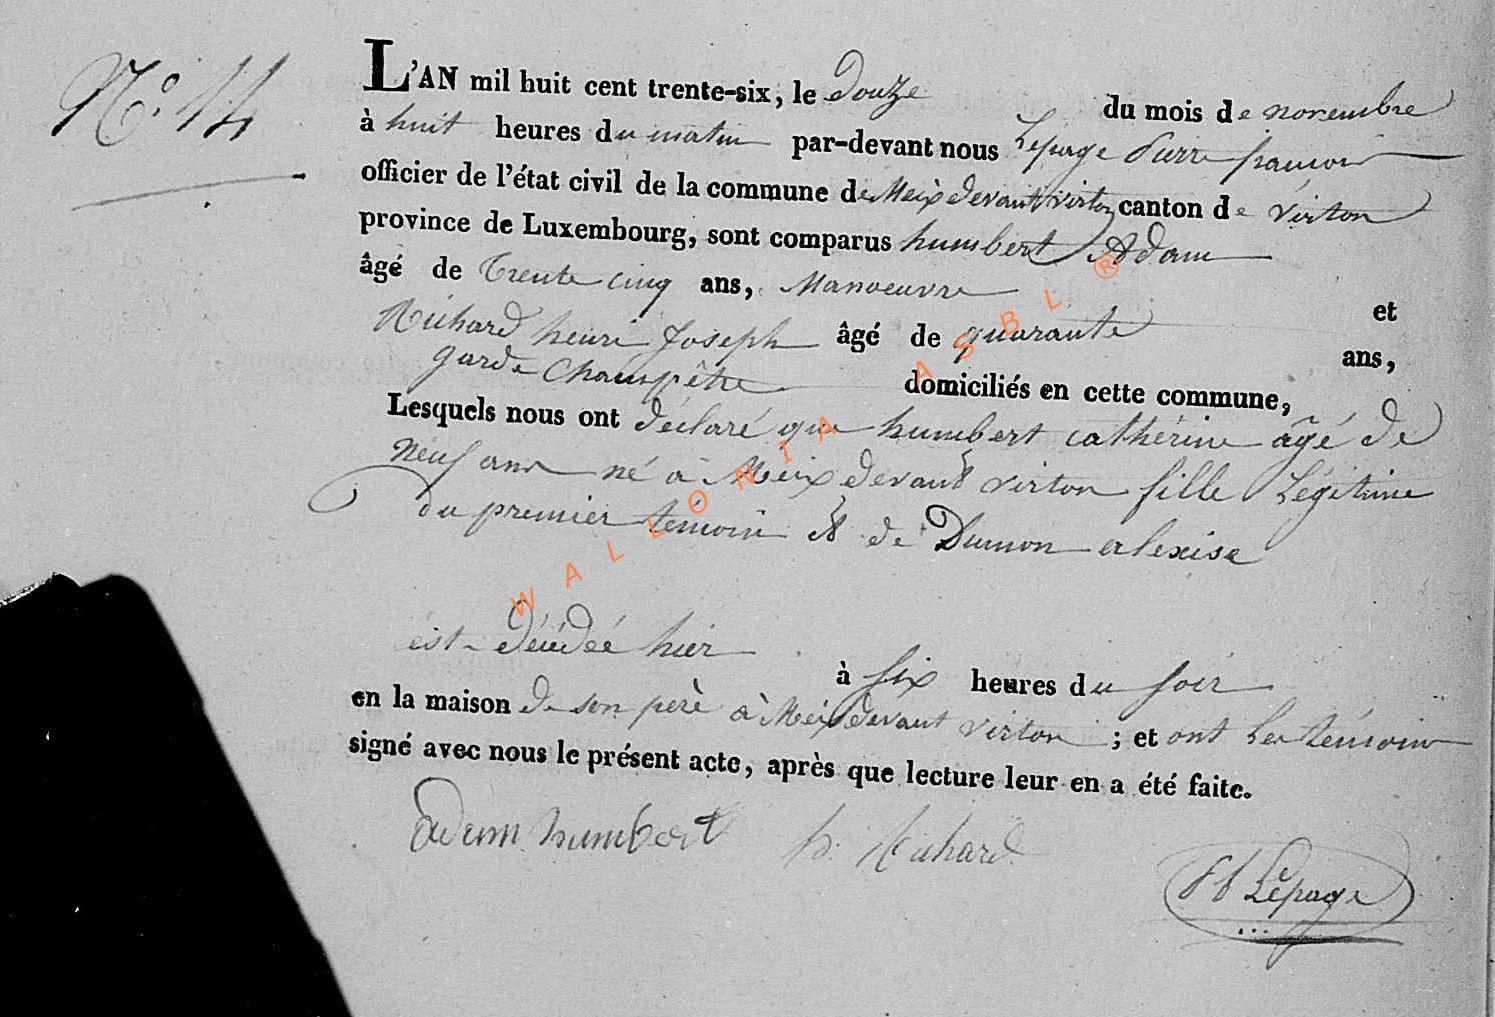 N.° 14
L'AN mil huit cent trente-six, le Douze du mois de novembre
à huit heures du matin par-devant nous Lepage Pierre françois
officier de l'état civil de la commune de Meix devant virton canton de virton
province de Luxembourg, sont comparus humbert Adam
âgé de Trente cinq ans, Manoeuvre et
Richard henri Joseph âgé de quarante ans,
garde Champêtre domiciliés en cette commune,
Lesquels nous ont déclaré que humbert cathérine âgé de
Neuf ans né à Meix devant virton fille Légitime
du premier témoin et de Dumon alexise
est décédeé hier à six heures du soir
en la maison de son perè à Meix devant virton ; et ont les témoins
signé avec nous le présent acte, après que lecture leur en a été faite.
adam humbert h. Richard
Lepage
WALLONIA ASBL ®